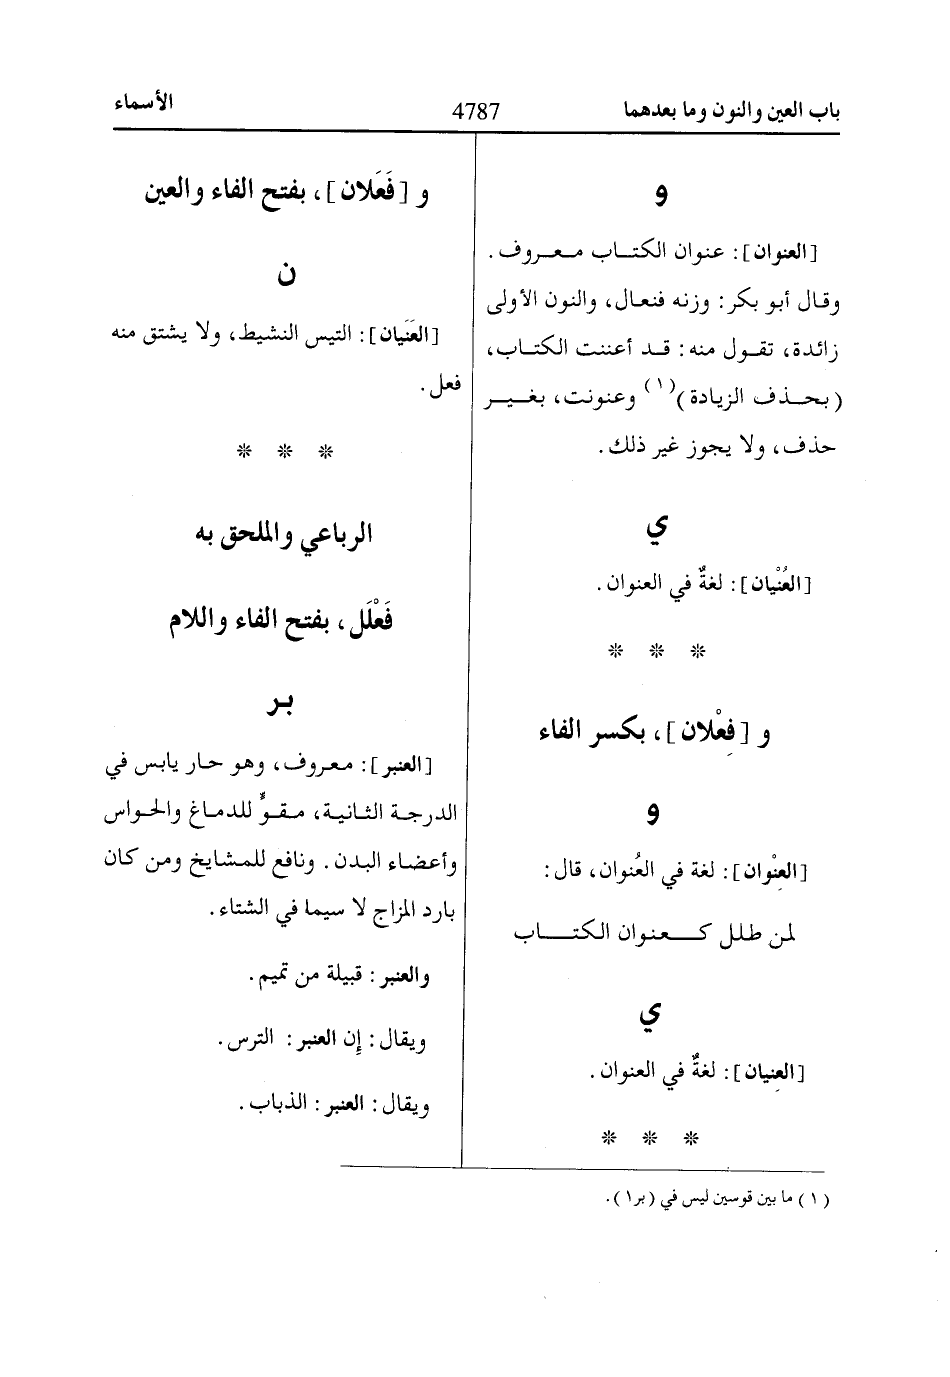 باب العين والنون وما بعدهما
4787
الأسماء
و
[العنوان]: عنوان الكتــاب معــروف.
وقال أبو بكر: وزنه فنعال، والنون الأولى
زائدة، تقــول منه: قــد أعننت الكتاب،
(بحــذف الزيادة)(١) وعنونت، بغيــر
حذف، ولا يجوز غير ذلك.
ي
[العُنْيان]: لغةٌ في العنوان.
* * *
و [فِعْلان]، بكسر الفاء
و
[العِنْوان]: لغة في العُنوان، قال:
لمن طلل كــعنوان الكتــاب
ي
[العِنيان]: لغةٌ في العنوان.
* * *
و [فَعَلان]، بفتح الفاء والعين
ن
[العَنَيان]: التيس النشيط، ولا يشتق منه
فعل.
* * *
الرباعي والملحق به
فَعْلَل، بفتح الفاء واللام
بر
[العنبر]: معروف، وهو حار يابس في
الدرجة الثانية، مقوٍّ للدماغ والحواس
وأعضاء البدن. ونافع للمشايخ ومن كان
بارد المزاج لا سيما في الشتاء.
والعنبر: قبيلة من تميم.
ويقال: إِن العنبر: الترس.
ويقال: العنبر: الذباب.
(١) ما بين قوسين ليس في (بر١).